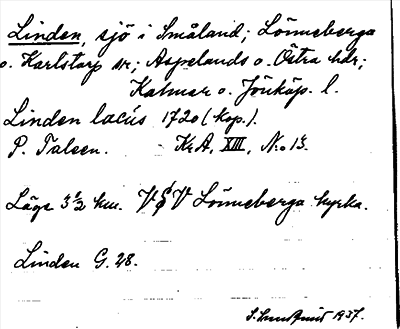 Linden, sjö i Småland; Lönneberga
o. Karlstorp snr; Aspelands o. Östra hdr;
Kalmar o. Jönköp. l.
Linden lacus 1720 (kop.).
P. Taleen. Kr.A, XIII, N:o 13.
Läge 3 1/2 km. VSV Lönneberga kyrka.
Linden G. 28.
1937.